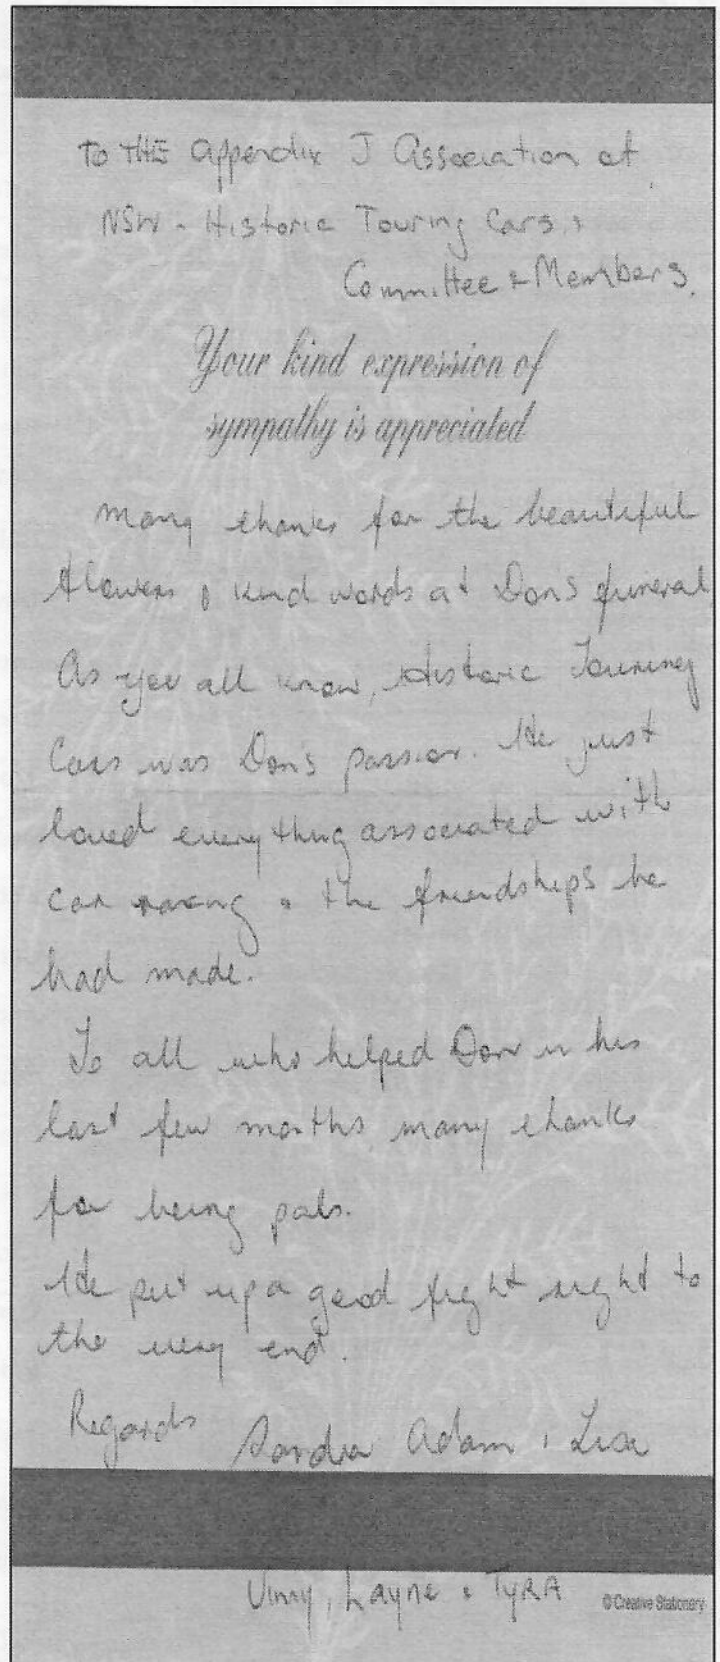 TO THE Appendix J Association of
NSW - Historic Touring Cars,
Committee & Members.
Your kind expression of
sympathy is appreciated
Many thanks for the beautiful
flowers & kind words at Don's funeral
As you all know, Historic Touring
Cars was Don's passion. He just
loved everything associated with
car racing & the friendships he
had made.
To all who helped Don in his
last few months many thanks
for being pals.
He put up a good fight right to
the very end.
Regards Sandra Adam & Lisa
Layne & TYRA
© Creative Stationery